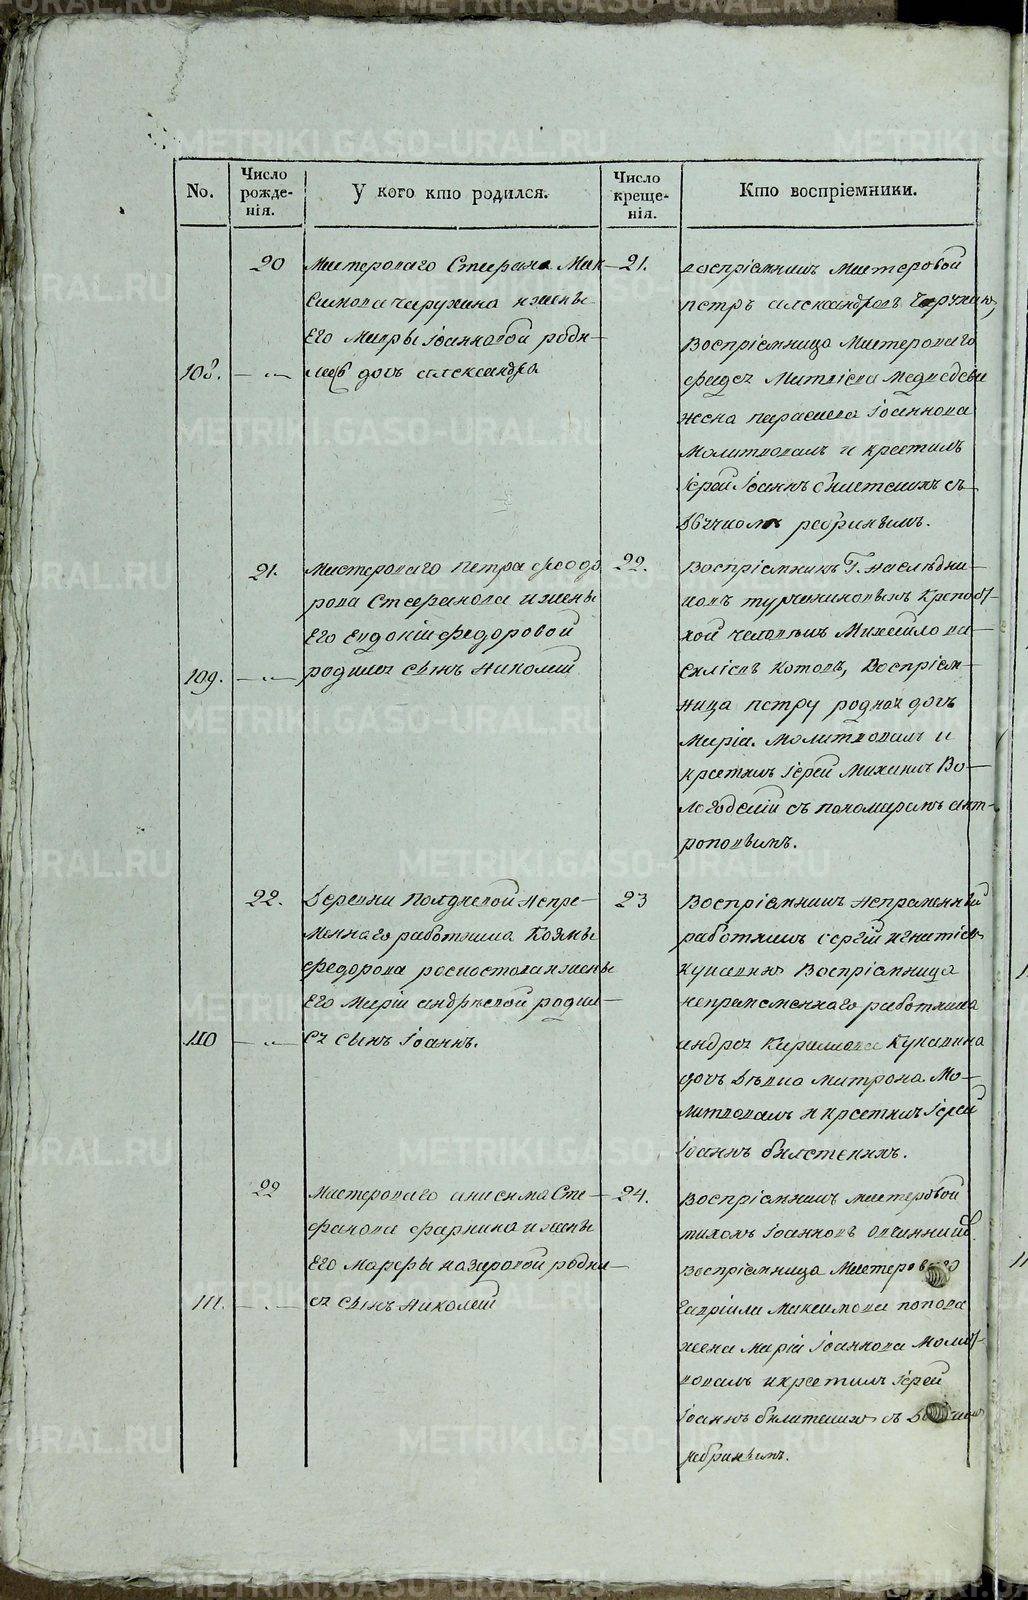 No.
Число рожде-нія.
У кого кто родился.
Число креще-нія.
Кто воспріемники.
20
Мастероваго Стефана Мак-
симова Чарухина и жены
Его Мавры Іоанновой роди-
108.
лась дочь Александра
21.
воспріемникъ Мастеровой
петръ Александровъ Чарухинъ,
Воспріемница Мастероваго
Матвіева Медведева
жена парасковья Іоаннова
Молитвовалъ и крестилъ
Іерей Іоаннъ съ
21.
Мастероваго Петра Феодо
рова Стефанова и жены
Его Евдокіи Федоровой
109.
родился сынъ Николай
22.
Воспріемникъ Г. наслѣдни-
ковъ турчаниновыхъ Крепост-
ной человекъ Михайло ва-
силіевъ Котовъ, Воспріем-
ница петру родная дочь
Марія. Молитвовалъ и
крестилъ Іерей Михаилъ Во-
логодскій съ пономаремъ Ант-
роповымъ.
22.
Деревни Полдневой непре-
меннаго работника Козмы
Федорова и жены
Его Маріи Андреевой роди-
110
ся сынъ Іоаннъ.
23
Воспріемникъ непременный
работникъ Сергій Игнатіевъ
Кунавинъ Воспріемница
непременнаго работника
Андрея Кирилова Кунавина
дочь Девка Матрона. Мо-
литвовалъ и крестилъ Іерей
Іоаннъ
22
Мастероваго Анисима Сте-
фанова и жены
Его Марфы Назаровой роди-
111.
ся сынъ Николай
24.
Воспріемникъ мастеровой
тихонъ Іоанновъ
воспріемница Мастероваго
Гавріила Максимова попова
жена Марія Іоаннова Молит-
вовалъ и крестилъ Іерей
Іоаннъ съ
METRIKI.GASO-URAL.RU